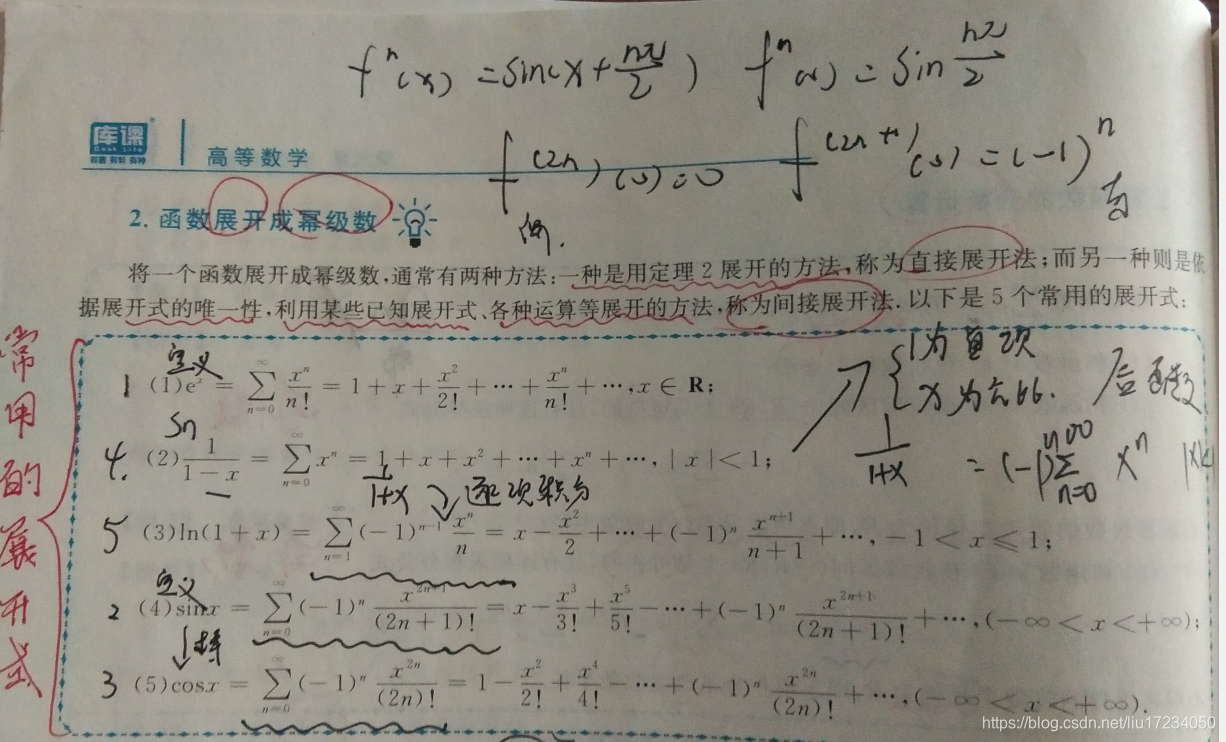 fⁿ(x) = sin(x + nπ/2) fⁿ(0) = sin nπ/2
库课 高等数学
有趣 有料 有种
f^(2n)(0) = 0 f^(2n+1)(0) = (-1)ⁿ
偶. 奇
2. 函数展开成幂级数
将一个函数展开成幂级数,通常有两种方法:一种是用定理 2 展开的方法,称为直接展开法;而另一种则是依
据展开式的唯一性,利用某些已知展开式、各种运算等展开的方法,称为间接展开法.以下是 5 个常用的展开式:
常用的展开式
{1为首项
定义
1 (1)eˣ = ∑_{n=0}^{∞} xⁿ/n! = 1 + x + x²/2! + ⋯ + xⁿ/n! + ⋯, x ∈ R;
Sn
4. (2) 1/(1-x) = ∑_{n=0}^{∞} xⁿ = 1 + x + x² + ⋯ + xⁿ + ⋯, |x| < 1;
1/(1+x) = (-1)ⁿ ∑_{n=0}^{∞} xⁿ |x|<
1/(1+x) 逐项积分
5 (3)ln(1+x) = ∑_{n=1}^{∞} (-1)^{n-1} xⁿ/n = x - x²/2 + ⋯ + (-1)ⁿ x^{n+1}/(n+1) + ⋯, -1 < x ≤ 1;
定义
2 (4)sinx = ∑_{n=0}^{∞} (-1)ⁿ x^{2n+1}/(2n+1)! = x - x³/3! + x⁵/5! - ⋯ + (-1)ⁿ x^{2n+1}/(2n+1)! + ⋯, (-∞ < x < +∞);
3 (5)cosx = ∑_{n=0}^{∞} (-1)ⁿ x^{2n}/(2n)! = 1 - x²/2! + x⁴/4! - ⋯ + (-1)ⁿ x^{2n}/(2n)! + ⋯, (-∞ < x < +∞).
https://blog.csdn.net/liu17234050